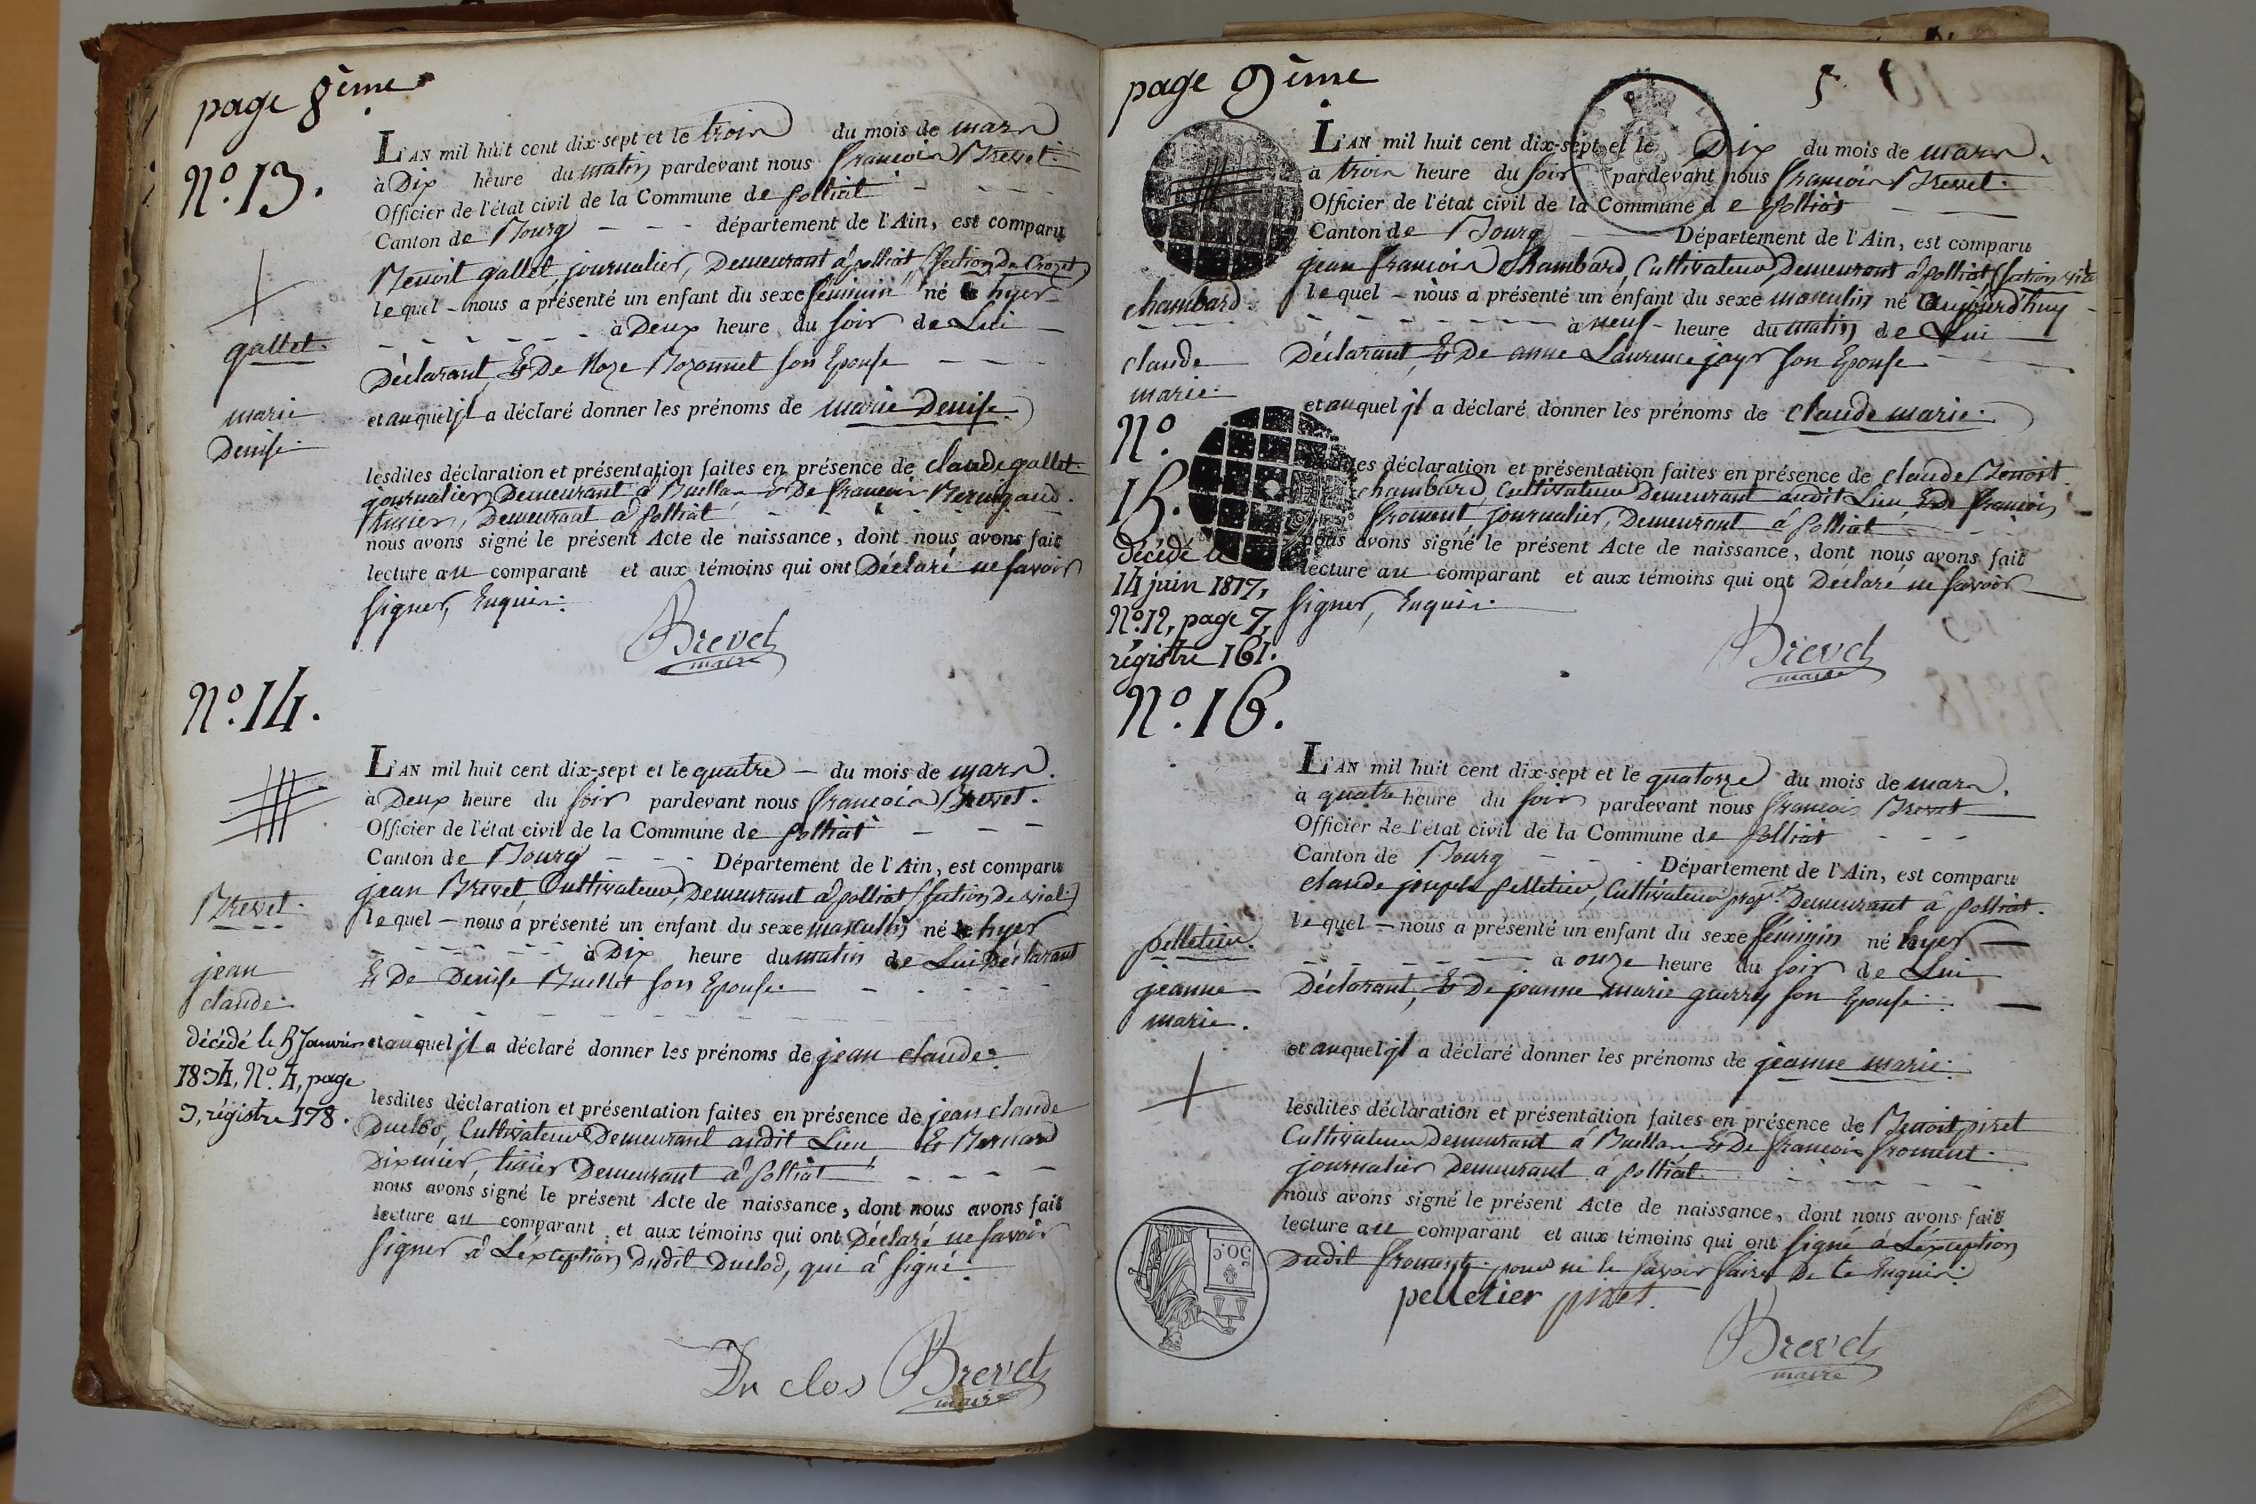 page 8ème
N.º 13.
gallet.
marie
Denise.
L'AN mil huit cent dix-sept et le trois du mois de mars
à Dix heure du matin pardevant nous françois Brevet.
Officier de l'état civil de la Commune de polliat
Canton de Bourg département de l'Ain, est comparu
Benoit gallet, journalier, Demeurant à polliat (Section Du Crozet)
lequel nous a présenté un enfant du sexe féminin né hyer
à Deux heure du soir de Lui
Déclarant, & De Roze Bozonnet son Epouse
et auquel jl a déclaré donner les prénoms de marie Denise.
lesdites déclaration et présentation faites en présence de claude gallet
journalier Demeurant à Buellas & De françois Bernigaud.
tissier, Demeurant à polliat
nous avons signé le présent Acte de naissance, dont nous avons fait
lecture au comparant et aux témoins qui ont Déclaré ne savoir
signer, Enquis.
Brevet
maire
N.º 14.
Brevet.
jean
claude.
décédé le 5 Janvier
1834, N.º 4, page
3, régistre 178.
L'AN mil huit cent dix-sept et le quatre du mois de mars.
à Deux heure du soir pardevant nous françois Brevet.
Officier de l'état civil de la Commune de polliat
Canton de Bourg Département de l'Ain, est comparu
jean Brevet, Cultivateur, Demeurant à polliat (section de vial.)
lequel nous a présenté un enfant du sexe masculin né hyer
à Dix heure du matin de Lui Déclarant
& De Denise Buellet son Epouse.
et auquel jl a déclaré donner les prénoms de jean claude.
lesdites déclaration et présentation faites en présence de jean claude
Duclos, Cultivateur Demeurant audit Lieu, & Bernard
Dixmier, tissier Demeurant à polliat
nous avons signé le présent Acte de naissance, dont nous avons fait
lecture au comparant et aux témoins qui ont Déclaré ne savoir
signer à L'éxception Dudit Duclos, qui à signé.
Du clos Brevet
maire
page 9ème
5
chambard.
claude
marie.
N.º
15.
décédé le
14 juin 1817,
N.º 12, page 7,
régistre 161.
L'AN mil huit cent dix-sept et le Dix du mois de mars.
à trois heure du soir pardevant nous françois Brevet.
Officier de l'état civil de la Commune de polliat
Canton de Bourg Département de l'Ain, est comparu
jean françois Chambard, Cultivateur, Demeurant à polliat, (section
lequel nous a présenté un enfant du sexe masculin né aujourd'huy
à neuf heure du matin de Lui
Déclarant, & De anne Laurence jayr son Epouse
et auquel jl a déclaré donner les prénoms de claude marie.
lesdites déclaration et présentation faites en présence de claude Benoit
chambard, Cultivateur Demeurant audit Lieu & De françois
froment journalier, Demeurant à polliat
nous avons signé le présent Acte de naissance, dont nous avons fait
lecture au comparant et aux témoins qui ont Déclaré ne savoir
signer, Enquis.
Brevet
maire
N.º 16.
pelletier.
jeanne
marie.
L'AN mil huit cent dix-sept et le quatorze du mois de mars.
à quatre heure du soir pardevant nous françois Brevet
Officier de l'état civil de la Commune de polliat
Canton de Bourg Département de l'Ain, est comparu
claude joseph pelletier, Cultivateur prop.re Demeurant à polliat.
lequel nous a présenté un enfant du sexe féminin né hyer
à onze heure du soir de Lui
Déclarant, & De jeanne marie guerry son Epouse.
et auquel jl a déclaré donner les prénoms de jeanne marie.
lesdites déclaration et présentation faites en présence de Benoit piret
Cultivateur Demeurant à Buellas & De françois froment.
journalier Demeurant à polliat.
nous avons signé le présent Acte de naissance, dont nous avons fait
lecture au comparant et aux témoins qui ont signé à L'éxception
Dudit froment. pour ne le savoir faire De ce Enquis.
pelletier piret.
Brevet
maire
50 c.